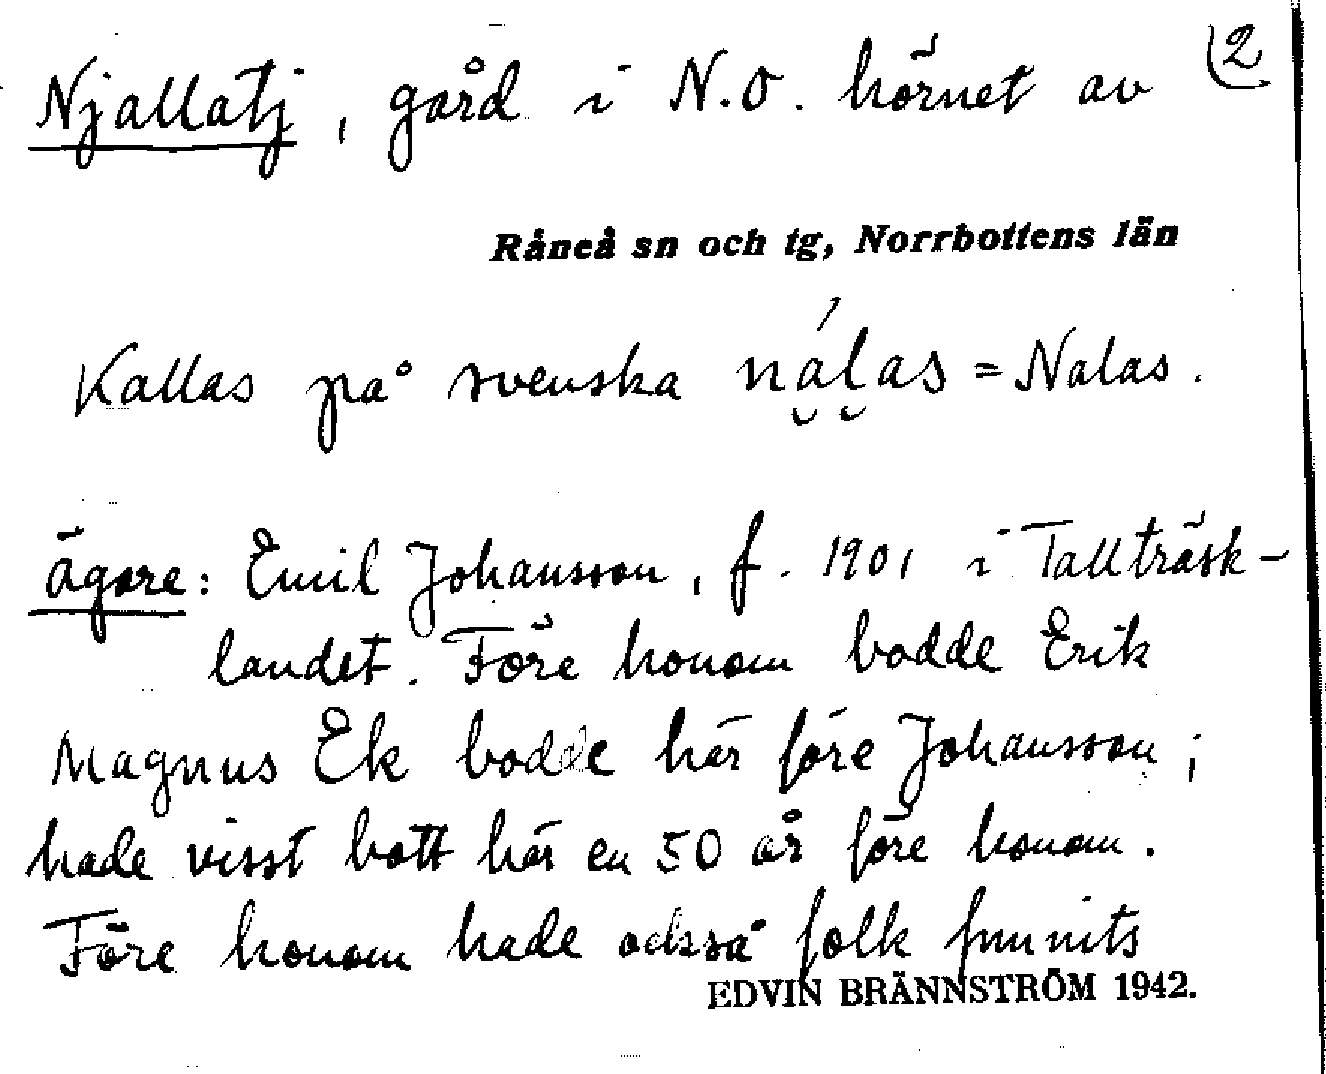 Njallatj, gård i N.O. hörnet av 2
Råneå sn och tg, Norrbottens län
Kallas på svenska nálas = Nalas.
ägare: Emil Johansson, f. 1901 i Tallträsk-
landet. Före honom bodde Erik
Magnus Ek bodde här före Johansson;
hade visst bott här en 50 år före honom.
Före honom hade också folk funnits
EDVIN BRÄNNSTRÖM 1942.